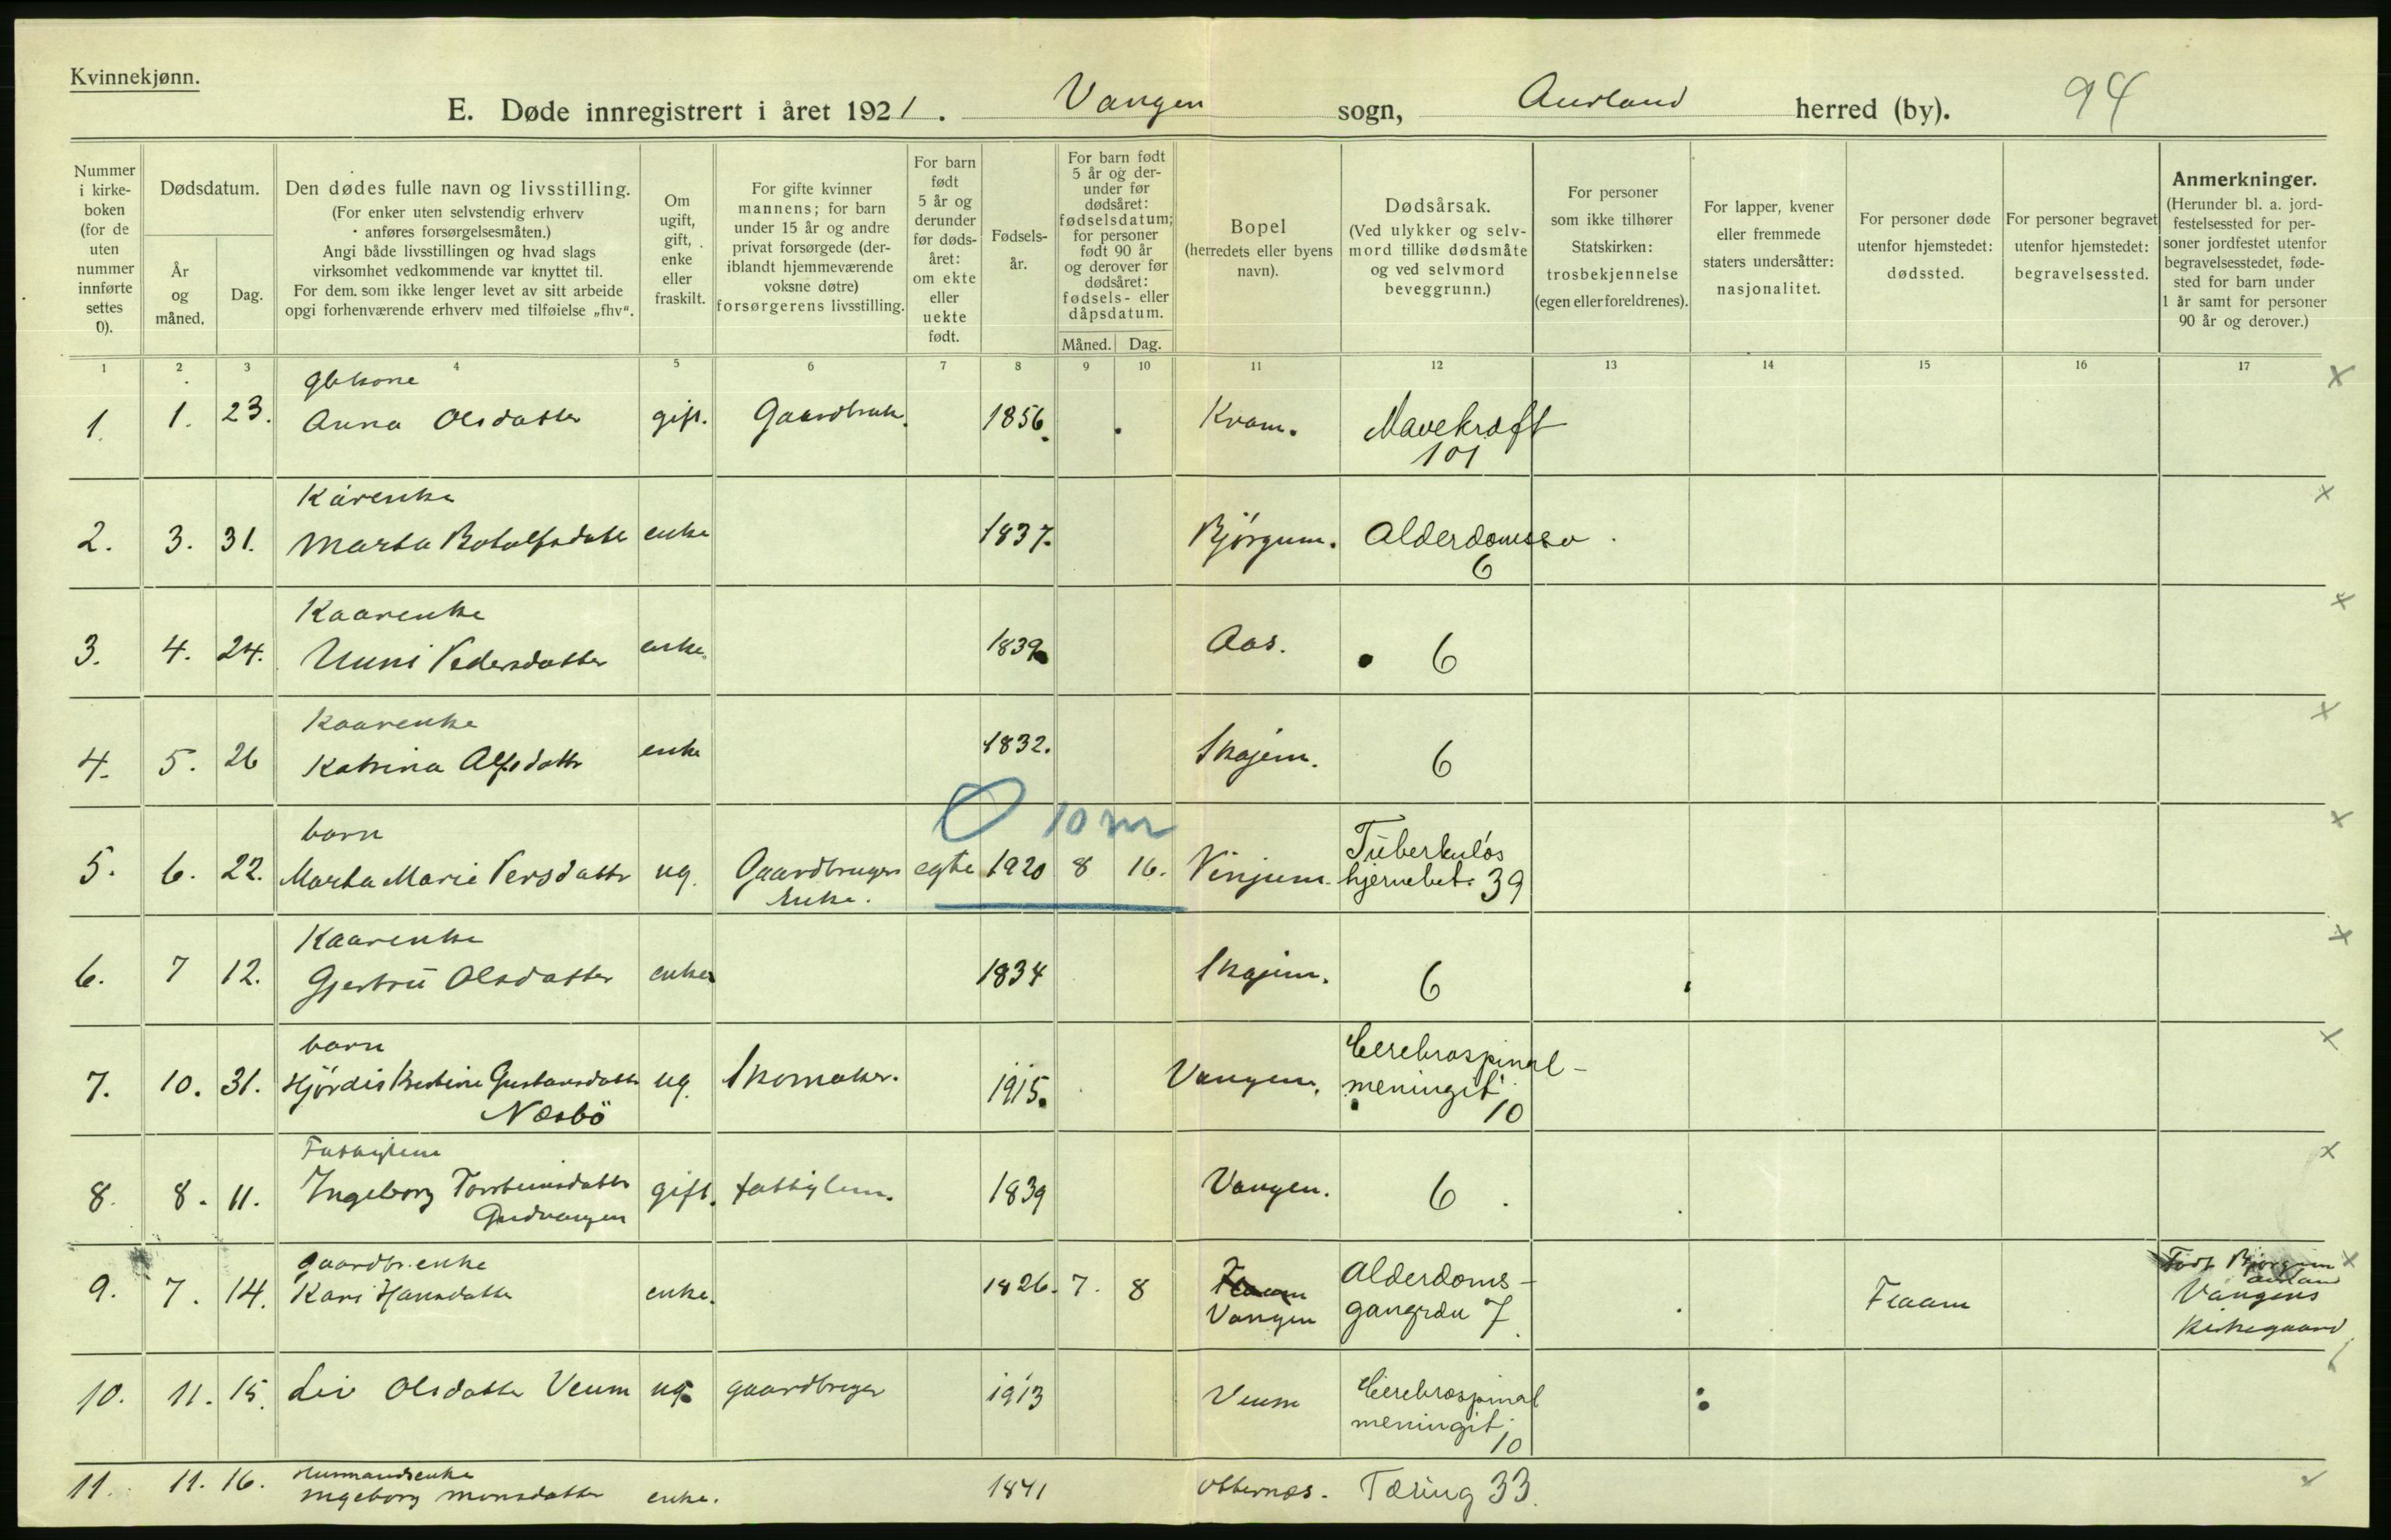 Kvinnekjønn.
E. Døde innregistrert i året 1921. Vangen sogn, Aurland herred (by). 94
Nummer i kirke-boken (for de uten nummer innførte settes 0).
Dødsdatum.
År og måned.
Dag.
Den dødes fulle navn og livsstilling.
(For enker uten selvstendig erhverv
anføres forsørgelsesmåten.)
Angi både livsstillingen og hvad slags
virksomhet vedkommende var knyttet til.
For dem som ikke lenger levet av sitt arbeide
opgi forhenværende erhverv med tilføielse „fhv“.
Om
ugift,
gift,
enke
eller
fraskilt.
For gifte kvinner
mannens; for barn
under 15 år og andre
privat forsørgede (der-
iblandt hjemmeværende
voksne døtre)
forsørgerens livsstilling.
For barn
født
5 år og
derunder
før døds-
året:
om ekte
eller
uekte
født.
Fødsels-
år.
For barn født
5 år og der-
under før
dødsåret:
fødselsdatum;
for personer
født 90 år
og derover før
dødsåret:
fødsels- eller
dåpsdatum.
Måned. Dag.
Bopel
(herredets eller byens
navn).
Dødsårsak.
(Ved ulykker og selv-
mord tillike dødsmåte
og ved selvmord
beveggrunn.)
For personer
som ikke tilhører
Statskirken:
trosbekjennelse
(egen eller foreldrenes).
For lapper, kvener
eller fremmede
staters undersåtter:
nasjonalitet.
For personer døde
utenfor hjemstedet:
dødssted.
For personer begravet
utenfor hjemstedet:
begravelsessted.
Anmerkninger.
(Herunder bl. a. jord-
festelsessted for per-
soner jordfestet utenfor
begravelsesstedet, føde-
sted for barn under
1 år samt for personer
90 år og derover.)
1 2 3 4 5 6 7 8 9 10 11 12 13 14 15 16 17
gbkone
1. 1. 23. Anna Olsdatter gift. Gaardbruk. 1856. Kvam. Mavekræft
101
Kårenke
2. 3. 31. Marta Botolfsdatt enke 1837. Bjørgum. Alderdomssv
6
Kaarenke
3. 4. 24. Unni Pedersdatter enke. 1839 Aas. 6
Kaarenke
4. 5. 26 Katrina Alfsdattr enke 1832. Skajem. 6
0 10 m
barn
5. 6. 22. Marta Marie Persdattr ug. Gaardbruger egte 1920 8 16. Vinjum. Tuberkuløs
enke. hjernebet. 39
Kaarenke
6. 7 12. Gjertrū Olsdatter enke 1834 Skajem. 6
barn
7. 10. 31. Hjördis Kristine Gustavsdattr ug. Skomaker. 1915. Vangen. Cerebrospinal-
meningit
Næsbö 10
Fattiglem
8. 8. 11. Ingeborg Torsteinsdattr gift. fattiglem. 1839 Vangen. 6
Gudvangen
gaardbr.enke
9. 7. 14. Kari Hansdatter enke. 1826. 7. 8 Flaam
Vangen Alderdoms-
gangræn 7 Flaam Født Bjørgum
Aurland
Vangens
kirkegaard
10. 11. 15. Liv Olsdatter Veum ug. gaardbruger 1913 Veum Cerebrospinal
meningit
10
Husmandsenke
11. 11. 16. Ingeborg Monsdatter enke. 1841 Otternæs. Tæring 33.